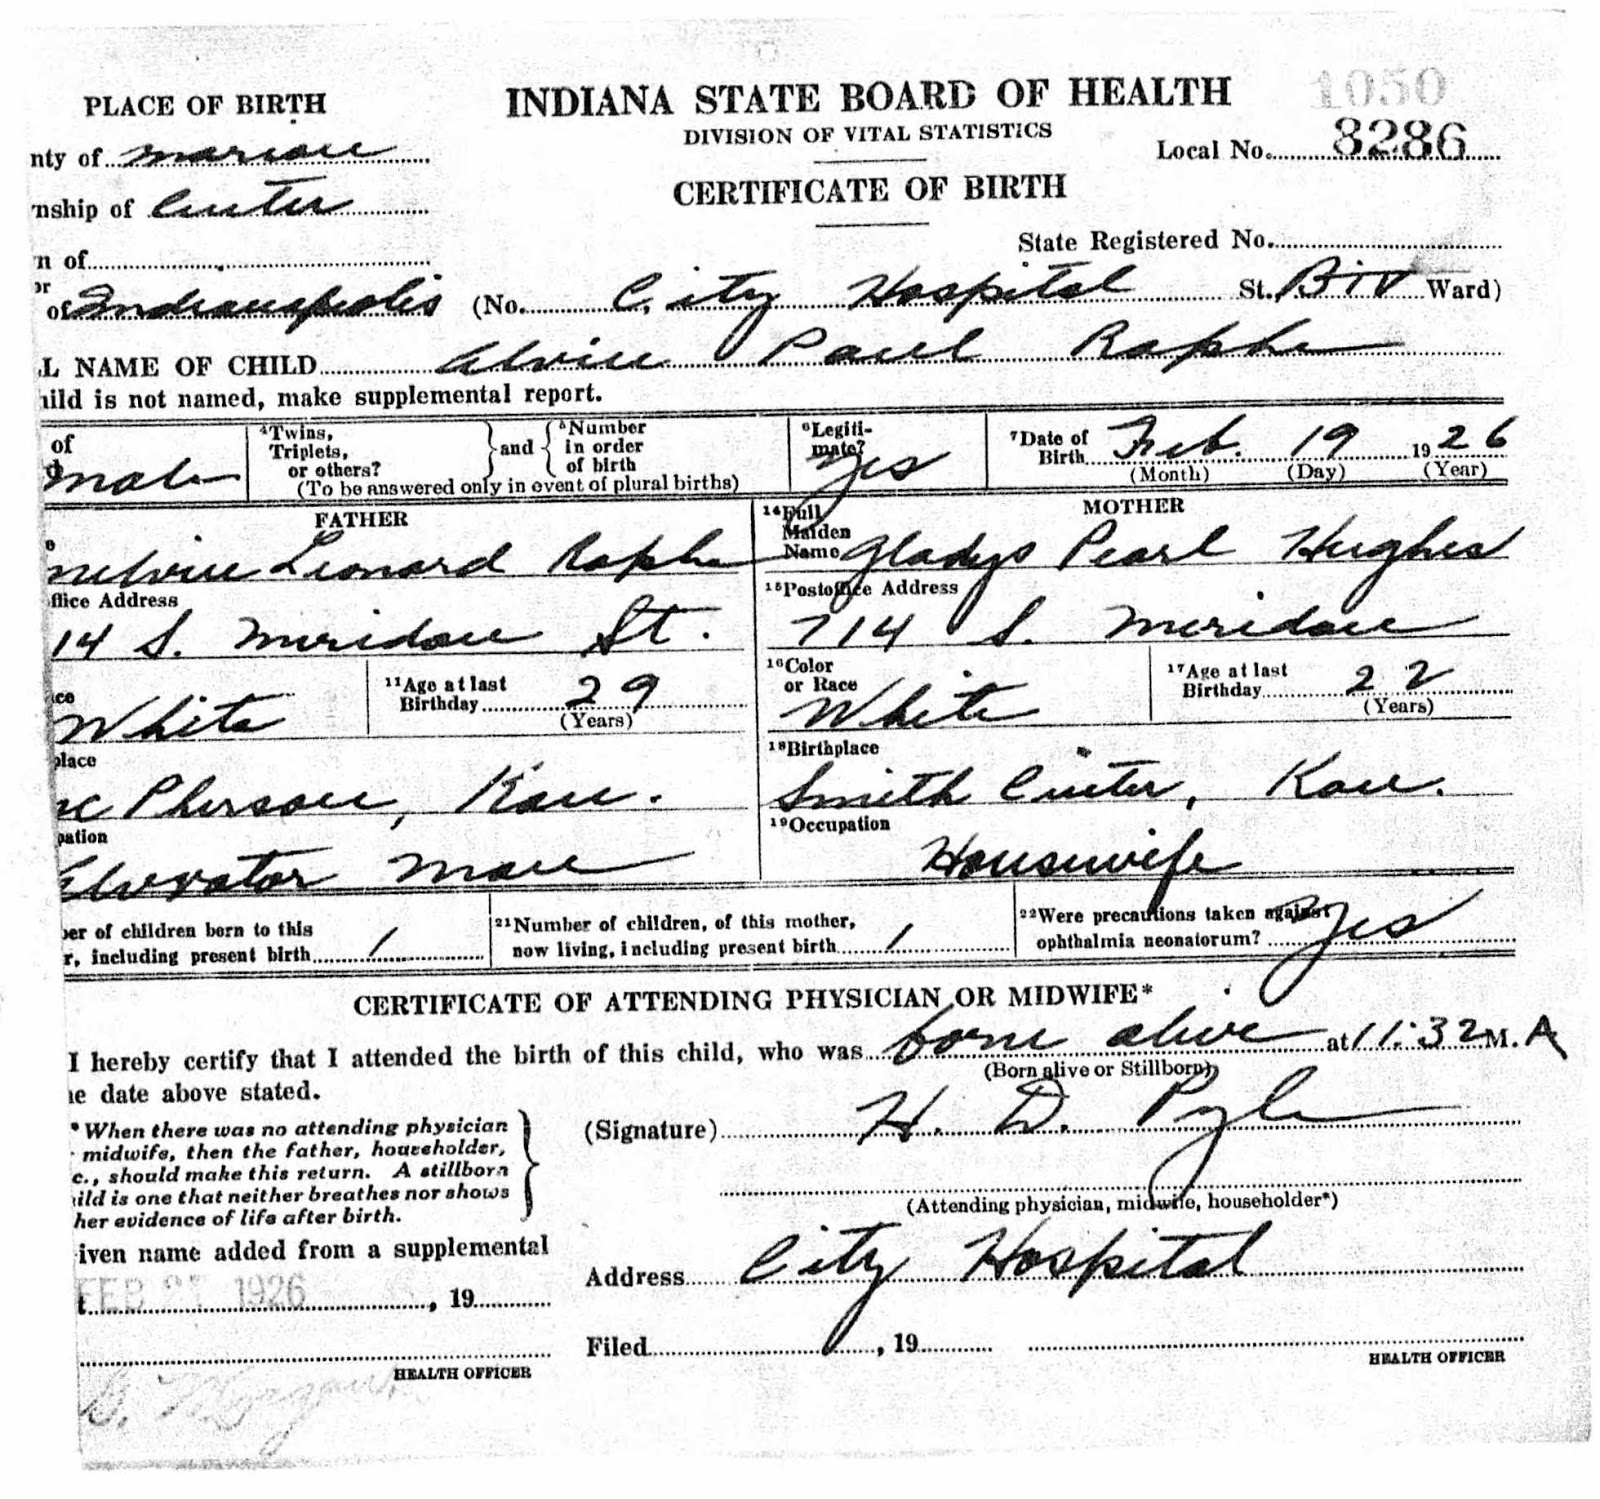 1050
PLACE OF BIRTH
INDIANA STATE BOARD OF HEALTH
DIVISION OF VITAL STATISTICS
nty of Marion
Local No. 8286
CERTIFICATE OF BIRTH
nship of Center
State Registered No.
n of
or
of Indianapolis (No. City Hospital St., Ward)
L NAME OF CHILD Alvin Paul Raphe
hild is not named, make supplemental report.
of
male
4 Twins, Triplets, or others? } and { 5 Number in order of birth
(To be answered only in event of plural births)
6 Legiti-mate? Yes
7 Date of Birth Feb. 19 1926
(Month) (Day) (Year)
FATHER
MOTHER
Melvin Leonard Raphe
14 Full Maiden Name Gladys Pearl Hughes
ffice Address
15 Postoffice Address
14 S. Meridian St.
714 S. Meridian
ce
White
11 Age at last Birthday 29
(Years)
16 Color or Race
White
17 Age at last Birthday 22
(Years)
place
18 Birthplace
Mc Pherson, Kan.
Smith Center, Kan.
pation
19 Occupation
Elevator Man
Housewife
ber of children born to this
r, including present birth 1
21 Number of children, of this mother,
now living, including present birth 1
22 Were precautions taken against
ophthalmia neonatorum? Yes
CERTIFICATE OF ATTENDING PHYSICIAN OR MIDWIFE*
I hereby certify that I attended the birth of this child, who was born alive at 11:32 M. A
(Born alive or Stillborn)
e date above stated.
*When there was no attending physician
midwife, then the father, householder,
c., should make this return. A stillborn
ild is one that neither breathes nor shows
her evidence of life after birth.
(Signature) H. D. Pyle
(Attending physician, midwife, householder*)
iven name added from a supplemental
Address City Hospital
FEB 1926 , 19
Filed , 19
HEALTH OFFICER
HEALTH OFFICER